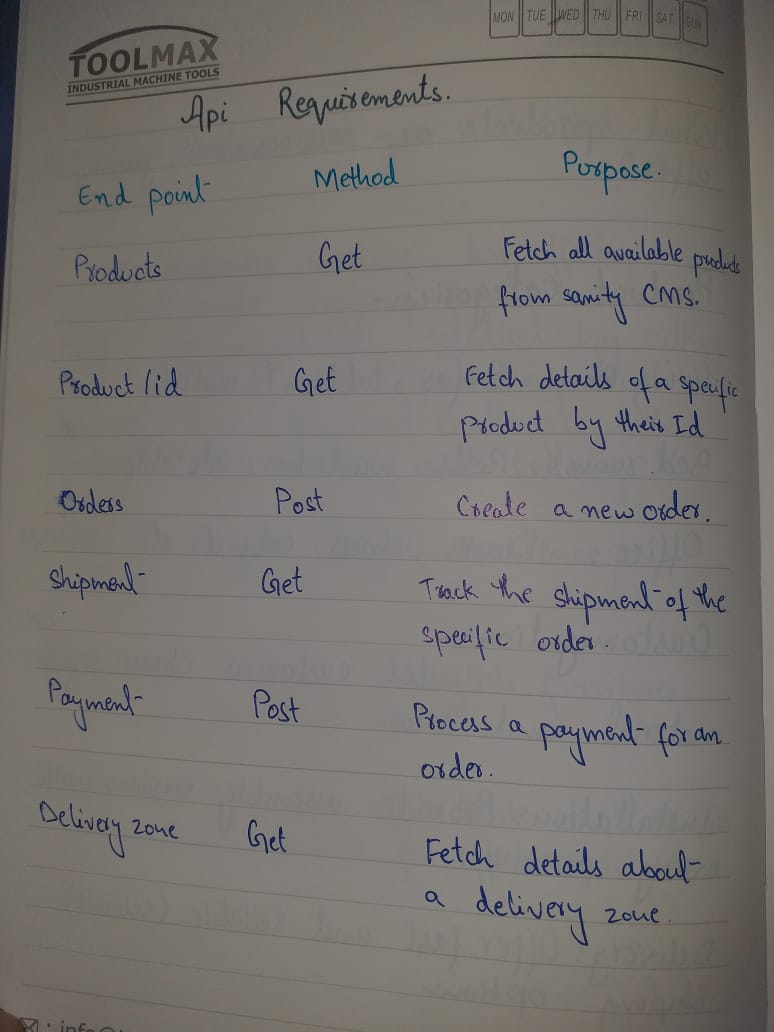 MON TUE WED THU FRI SAT SUN
TOOLMAX
INDUSTRIAL MACHINE TOOLS
Api Requirements.
End point Method Purpose.
Products Get Fetch all available products
from sanity CMS.
Product/id Get Fetch details of a specific
product by their Id
Orders Post Create a new order.
Shipment Get Track the shipment of the
specific order.
Payment Post Process a payment for an
order.
Delivery zone Get Fetch details about
a delivery zone.